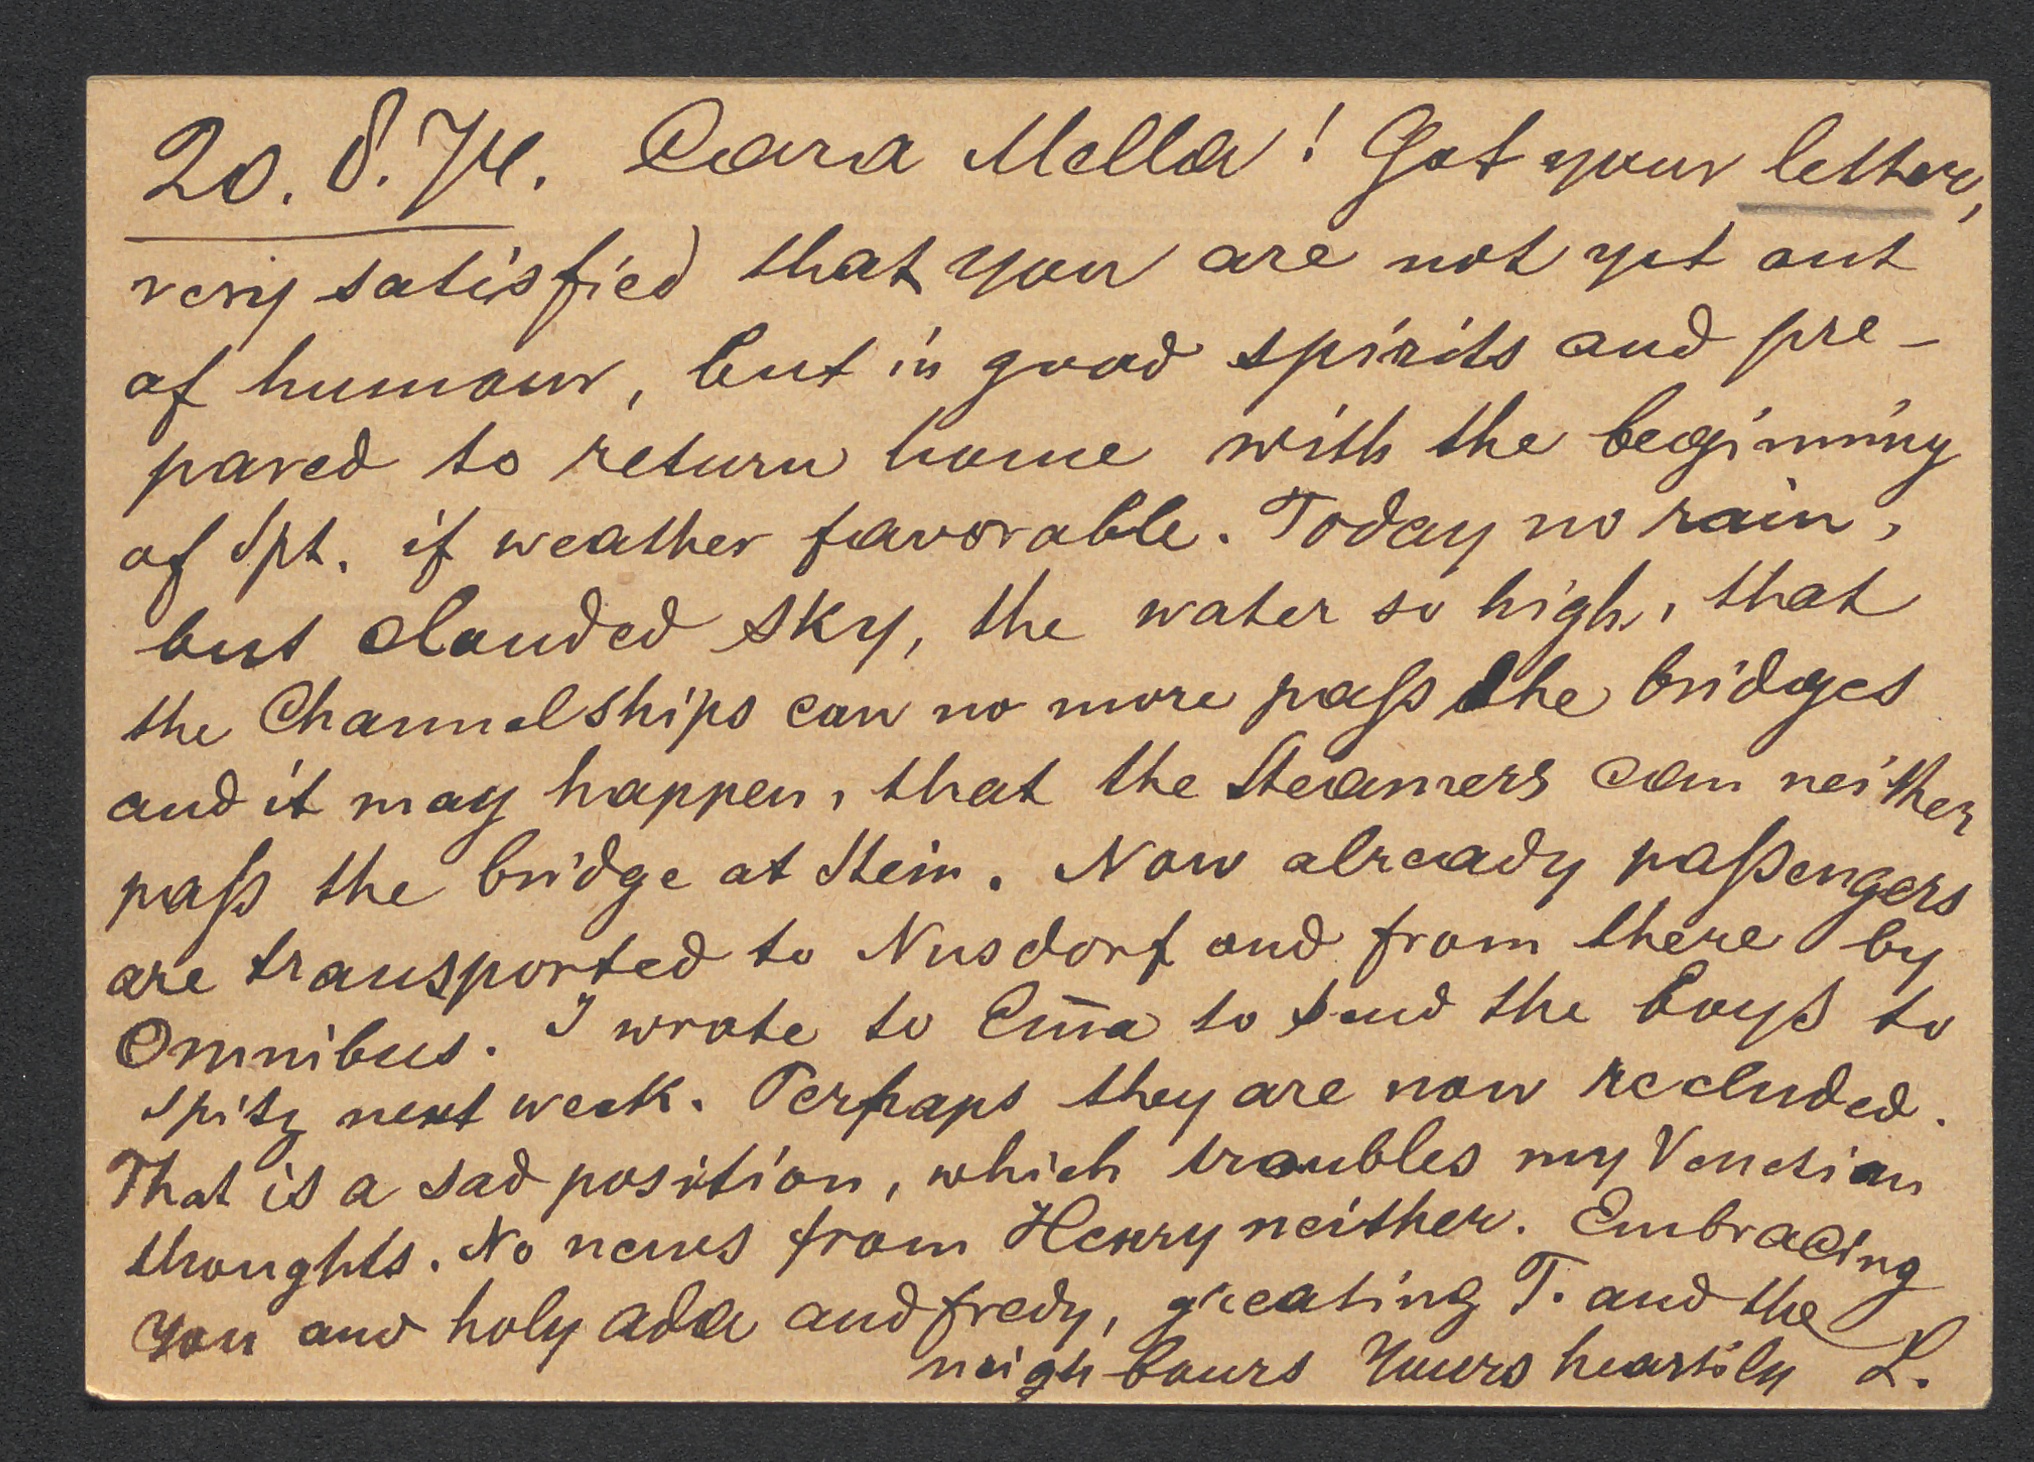 20. 8. 74. Cara Mella! Got your letter,
very satisfied that you are not yet out
of humour, but in good spirits and pre-
pared to return home with the beginning
of Spt. if weather favorable. Today no rain,
but clouded sky, the water so high, that
the Channelships can no more paſs the bridges
and it may happen, that the Steamers can neither
paſs the bridge at Stein. Now already paſsengers
are transported to Nusdorf and from there by
Omnibus. I wrote to Em̅a to send the boys to
Spitz next week. Perhaps they are now recluded.
That is a sad position, which troubles my Venetian
thoughts. No news from Henry neither. Embracing
You and holy Ada and fredy, greating T. and the
neighbours Yours heartily L.